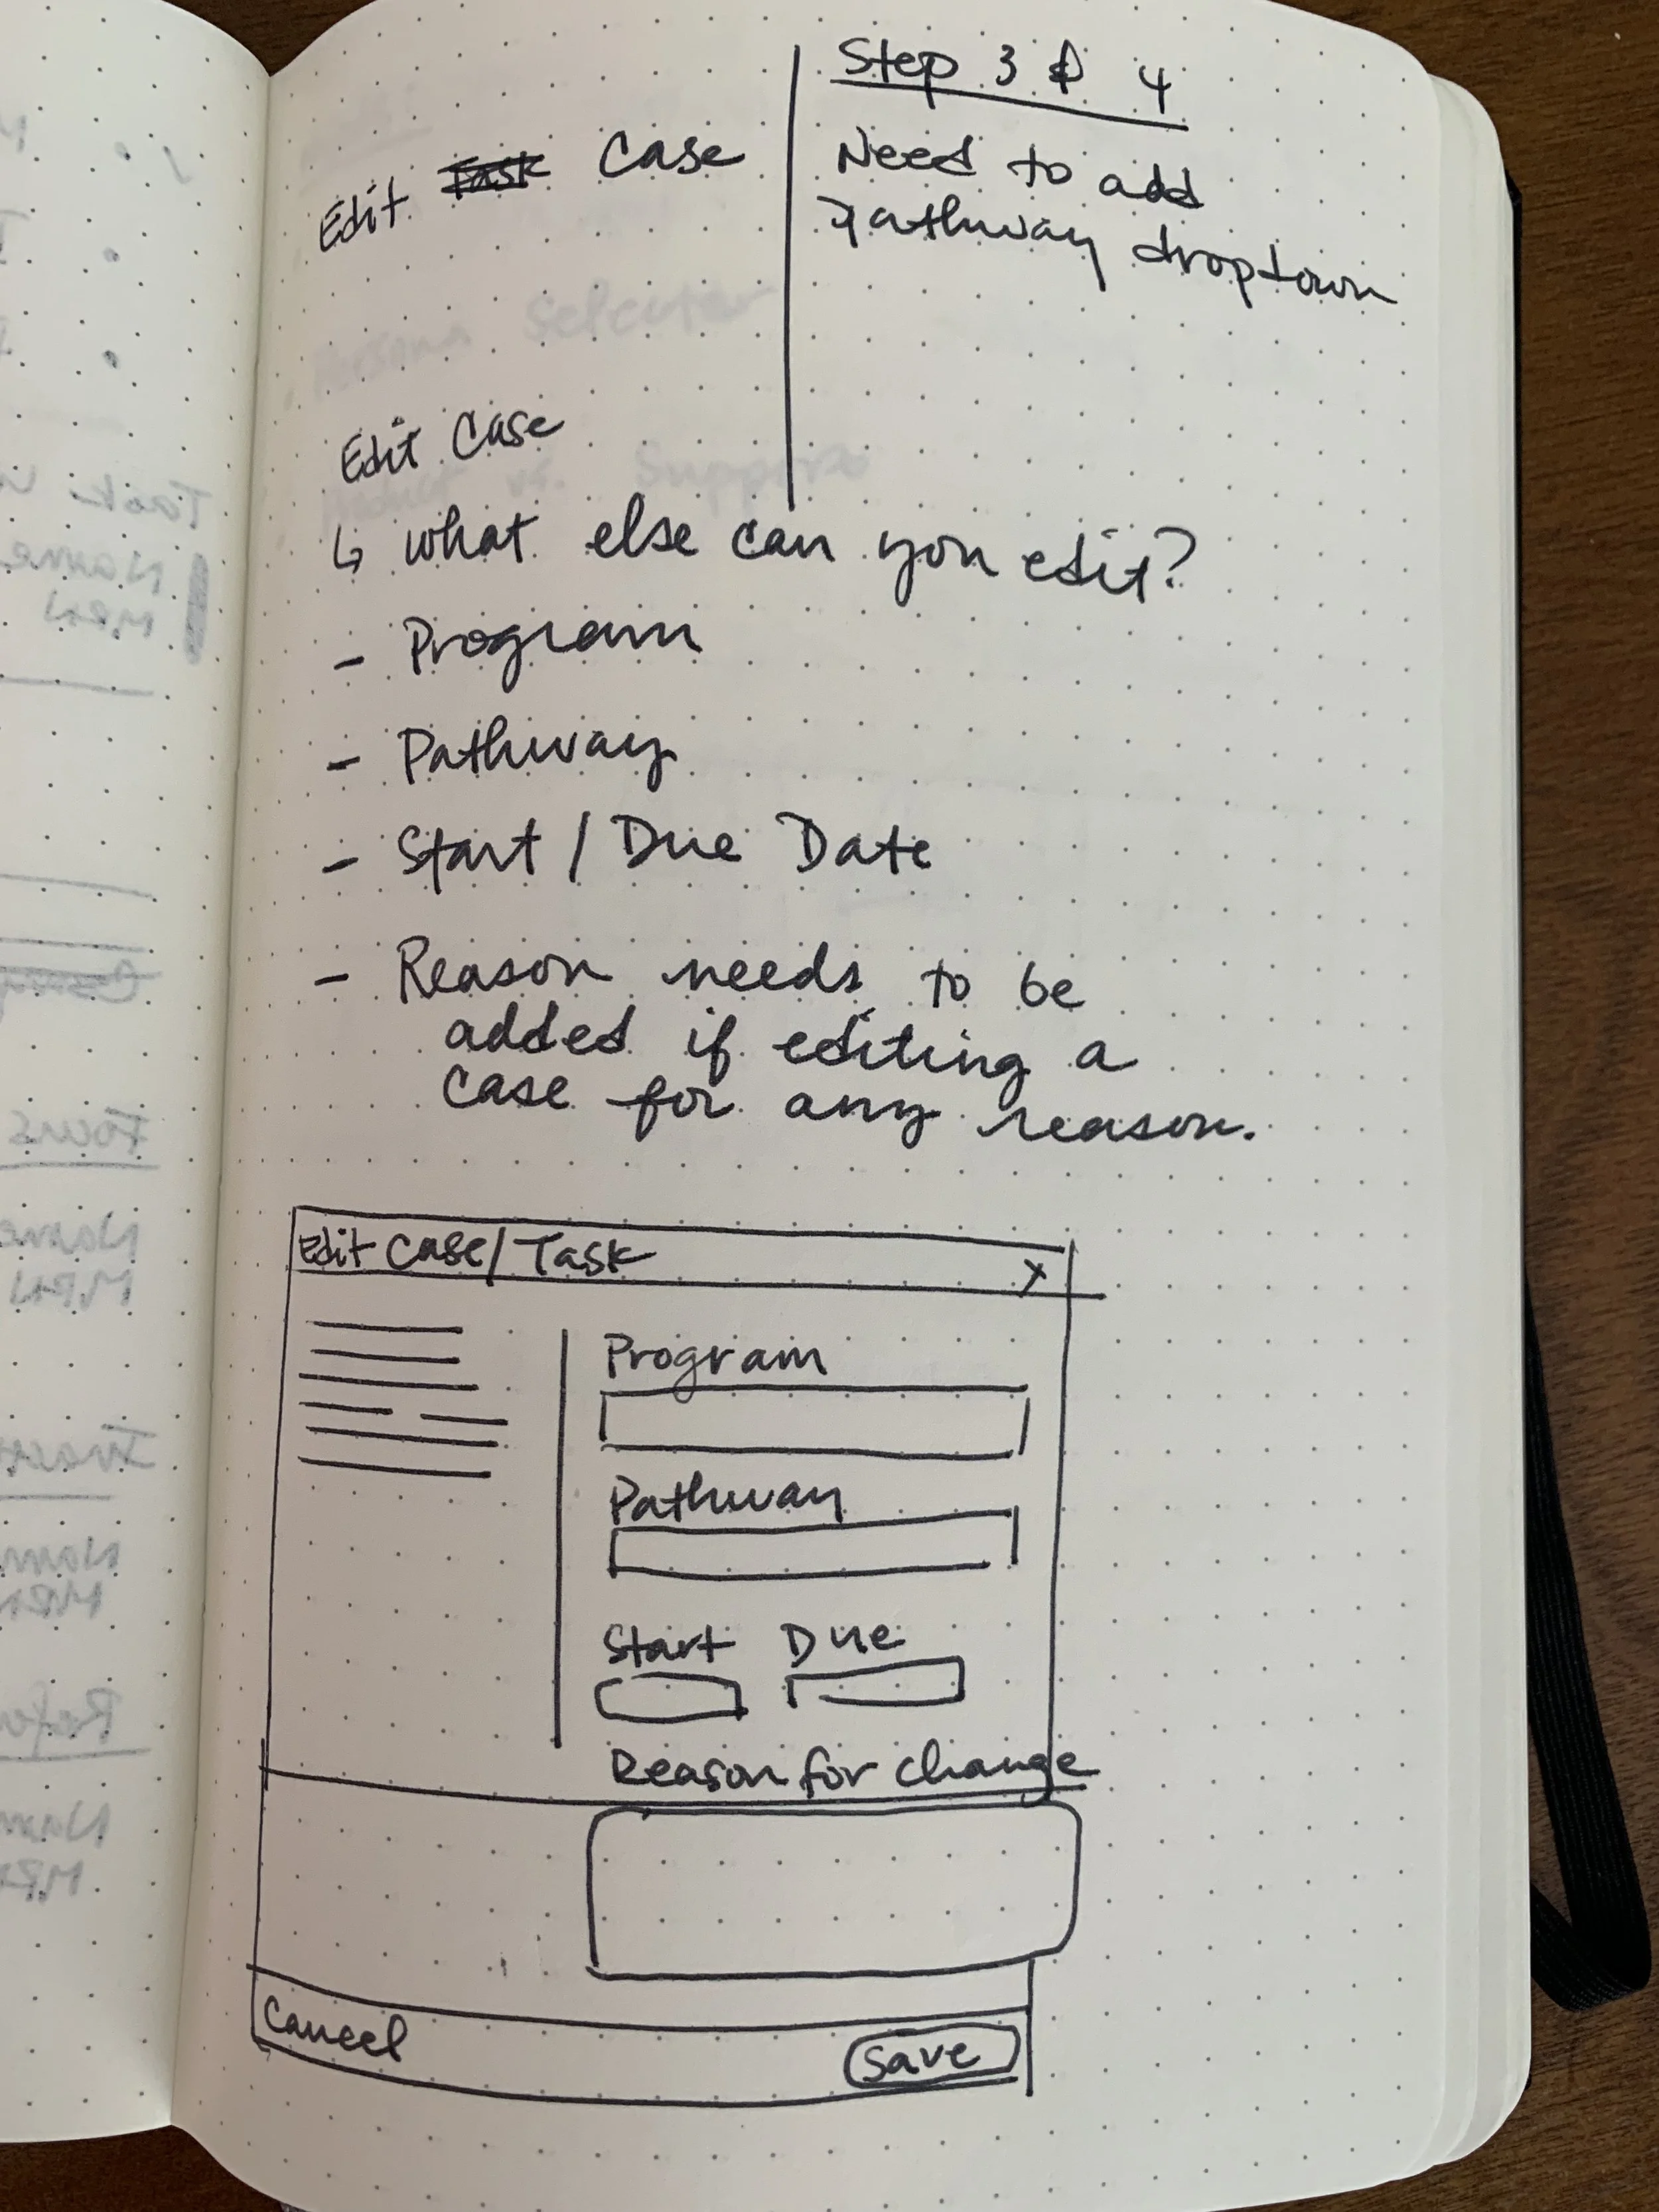 Edit Task Case
Step 3 & 4
Need to add
Pathway dropdown
Edit Case
↳ what else can you edit?
- Program
- Pathway
- Start / Due Date
- Reason needs to be
added if editing a
case for any reason.
Edit Case/Task X
Program
Pathway
Start Due
Reason for change
Cancel Save